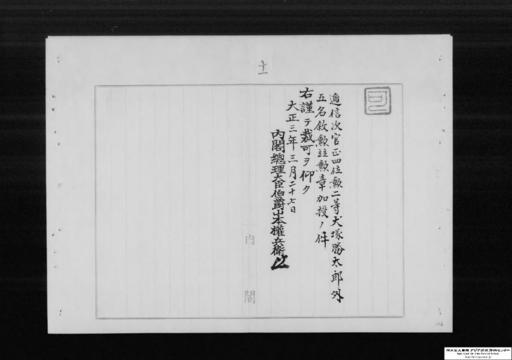 十一
可
逓信次官正四位勲二等犬塚勝太郎外
五名叙勲並勲章加授ノ件
右謹テ裁可ヲ仰ク
大正三年三月二十七日
内閣総理大臣伯爵山本権兵衛
内閣